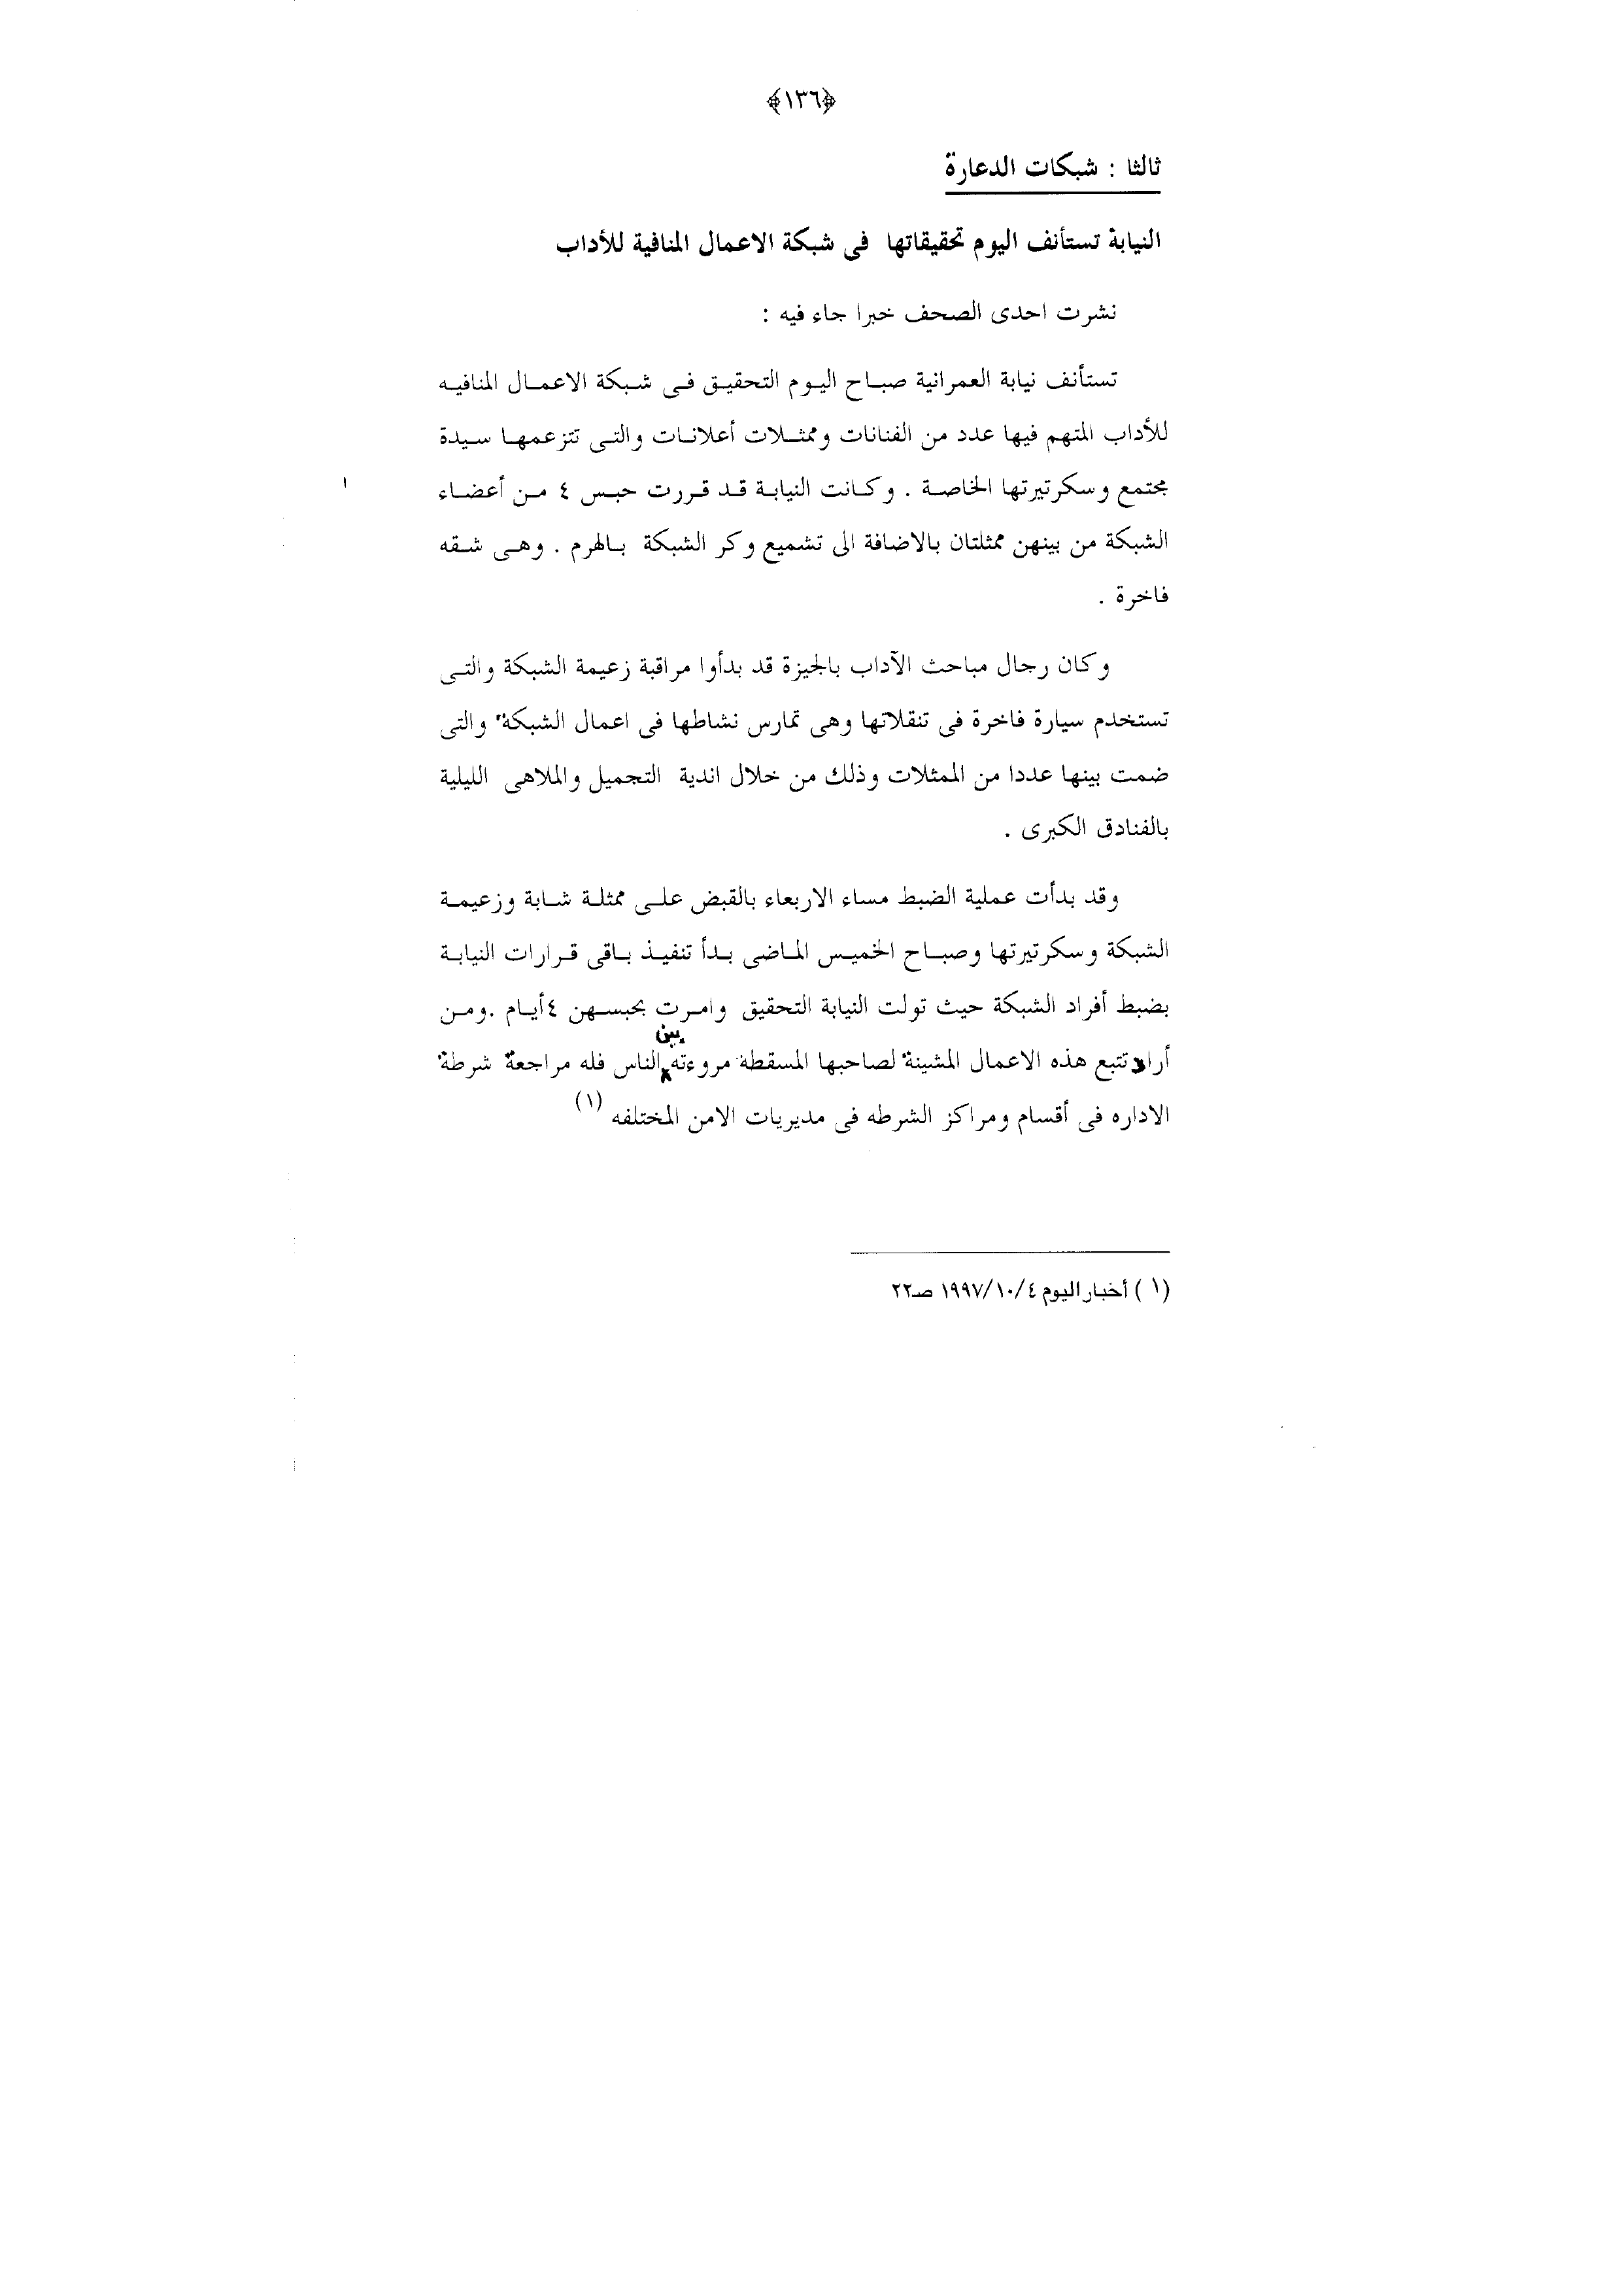 ﴿١٣٦﴾
ثالثا : شبكات الدعارة
النيابة تستأنف اليوم تحقيقاتها فى شبكة الاعمال المنافية للأداب
نشرت احدى الصحف خبرا جاء فيه :
تستأنف نيابة العمرانية صباح اليوم التحقيق فى شبكة الاعمال المنافيه
للأداب المتهم فيها عدد من الفنانات وممثلات أعلانات والتى تتزعمها سيدة
مجتمع وسكرتيرتها الخاصة . وكانت النيابة قد قررت حبس ٤ من أعضاء
الشبكة من بينهن ممثلتان بالاضافة الى تشميع وكر الشبكة بالهرم . وهى شقه
فاخرة .
وكان رجال مباحث الآداب بالجيزة قد بدأوا مراقبة زعيمة الشبكة والتى
تستخدم سيارة فاخرة فى تنقلاتها وهى تمارس نشاطها فى اعمال الشبكة والتى
ضمت بينها عددا من الممثلات وذلك من خلال اندية التجميل والملاهى الليلية
بالفنادق الكبرى .
وقد بدأت عملية الضبط مساء الاربعاء بالقبض على ممثلة شابة وزعيمة
الشبكة وسكرتيرتها وصباح الخميس الماضى بدأ تنفيذ باقى قرارات النيابة
بضبط أفراد الشبكة حيث تولت النيابة التحقيق وامرت بحبسهن ٤أيام .ومن
أراد تتبع هذه الاعمال المشينة لصاحبها المسقطة مروءته بين الناس فله مراجعة شرطة
الاداره فى أقسام ومراكز الشرطه فى مديريات الامن المختلفه (١)
(١ ) أخبار اليوم ١٩٩٧/١٠/٤ صـ٢٢